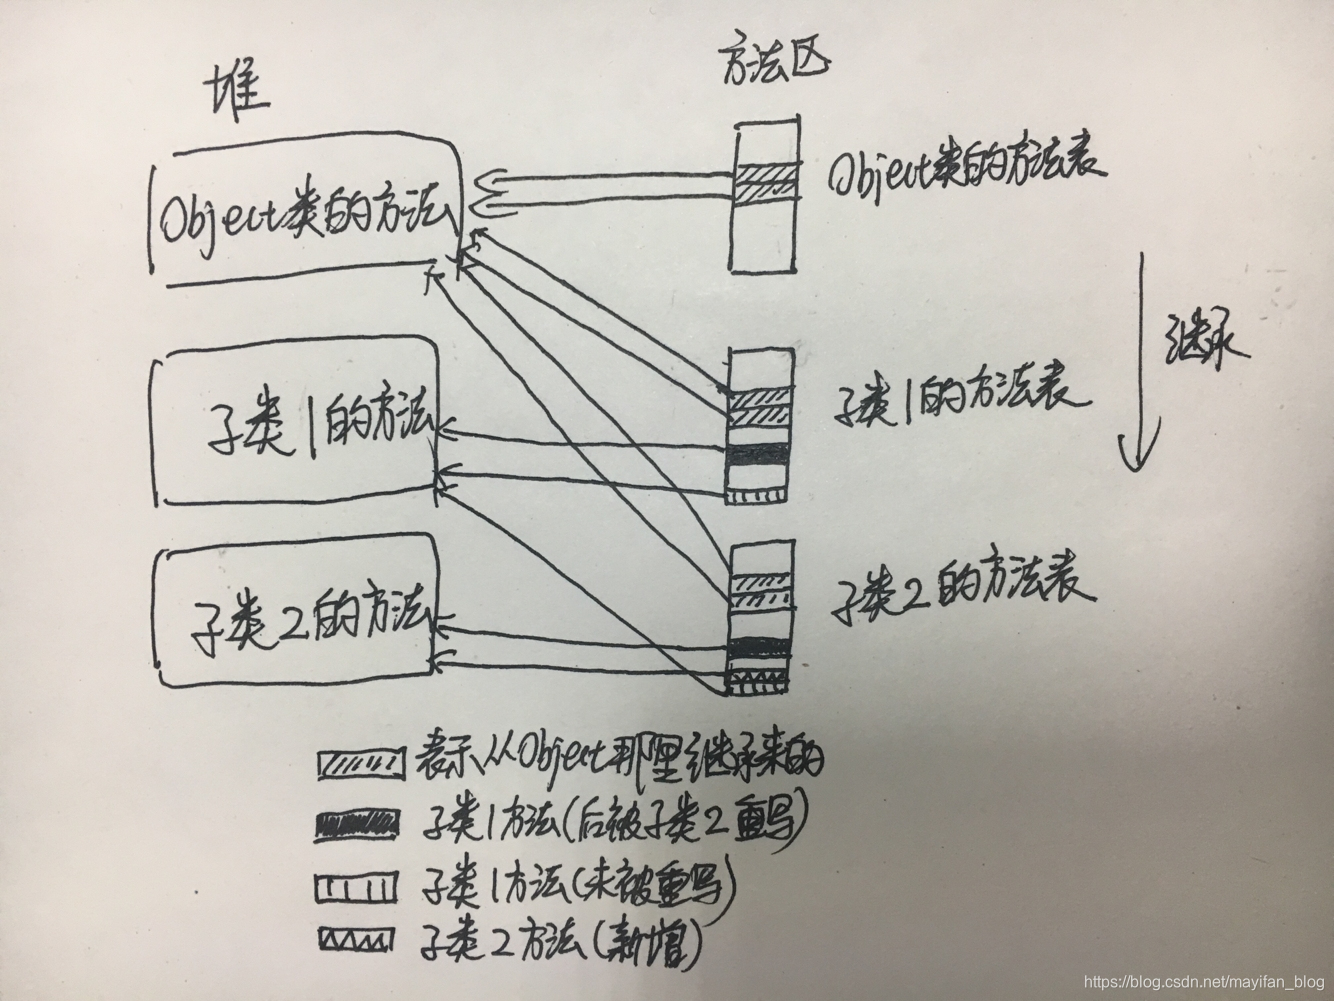 堆
方法区
Object类的方法
Object类的方法表
继承
子类1的方法
子类1的方法表
子类2的方法
子类2的方法表
表示从Object那里继承来的
子类1方法(后被子类2重写)
子类1方法(未被重写)
子类2方法(新增)
https://blog.csdn.net/mayifan_blog